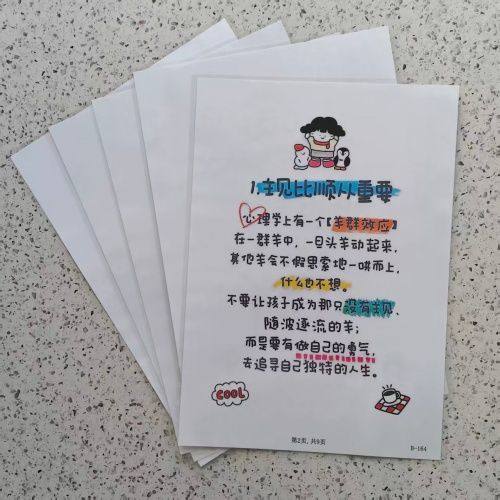 1.主见比顺从重要
心理学上有一个【羊群效应】
在一群羊中，一旦头羊动起来，
其他羊会不假思索地一哄而上，
什么也不想。
不要让孩子成为那只没有主见、
随波逐流的羊；
而是要有做自己的勇气，
去追寻自己独特的人生。
COOL
第2页，共9页
B-164